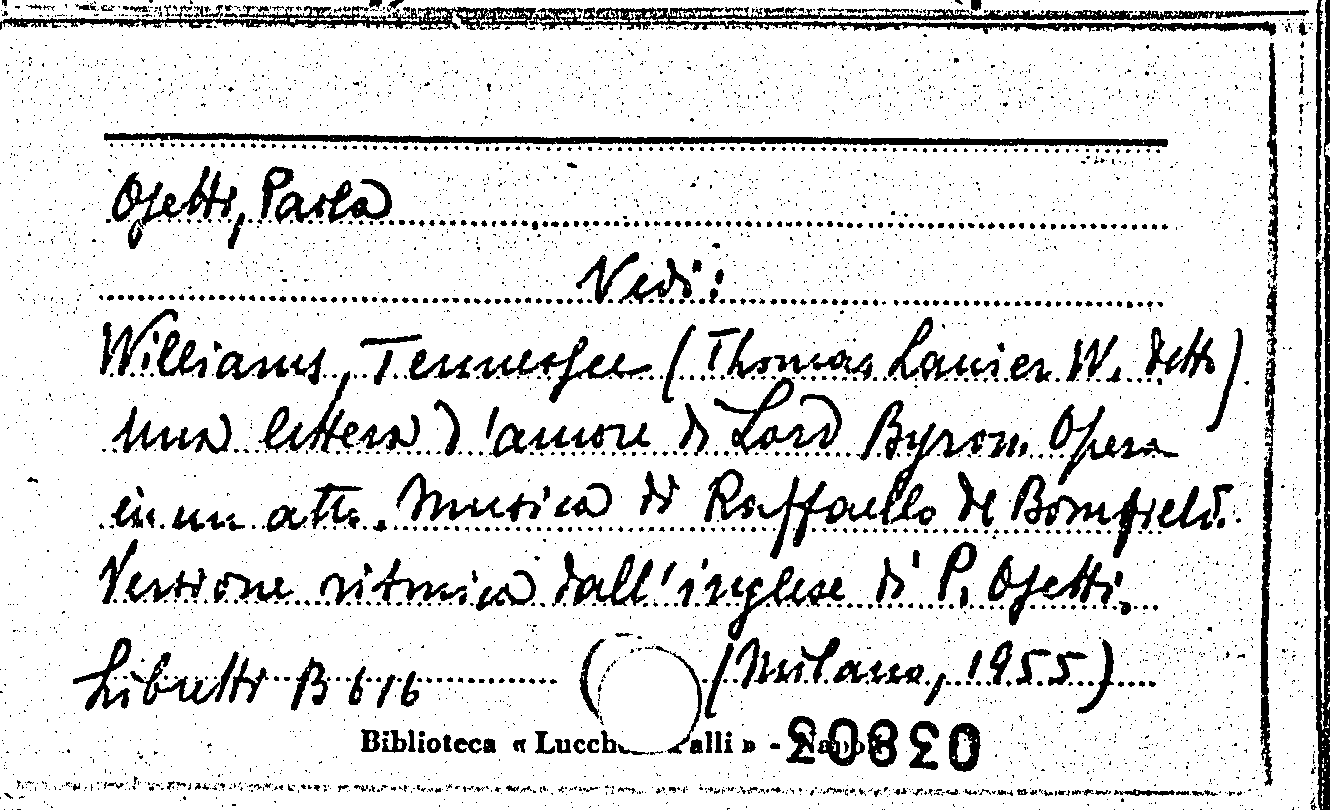 Ojetti, Paola
Vedi:
Williams, Tennessee (Thomas Lanier W. detto)
Una lettera d'amore di Lord Byron. Opera
in un atto. Musica di Raffaello de Banfield.
Versione ritmica dall'inglese di P. Ojetti.
Libretti B 616 (Milano, 1955)
Biblioteca « Lucch alli » - Napoli